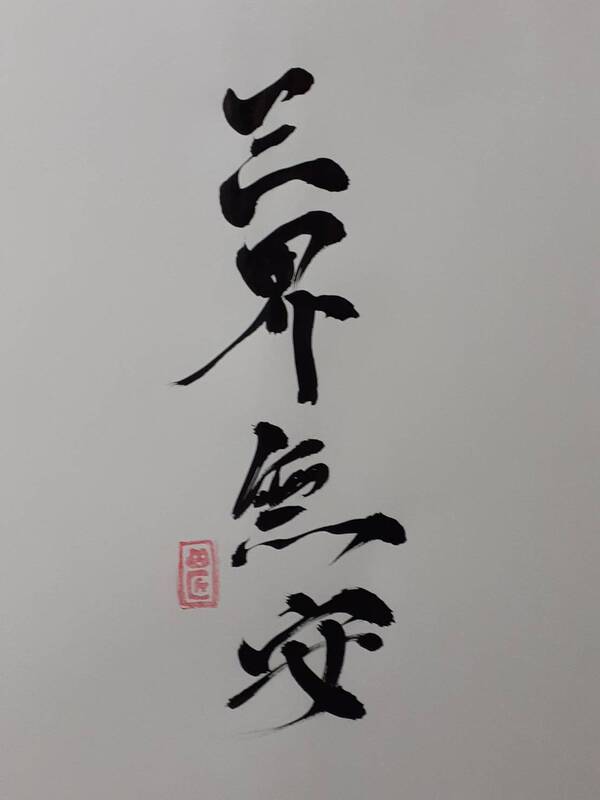 三界無安